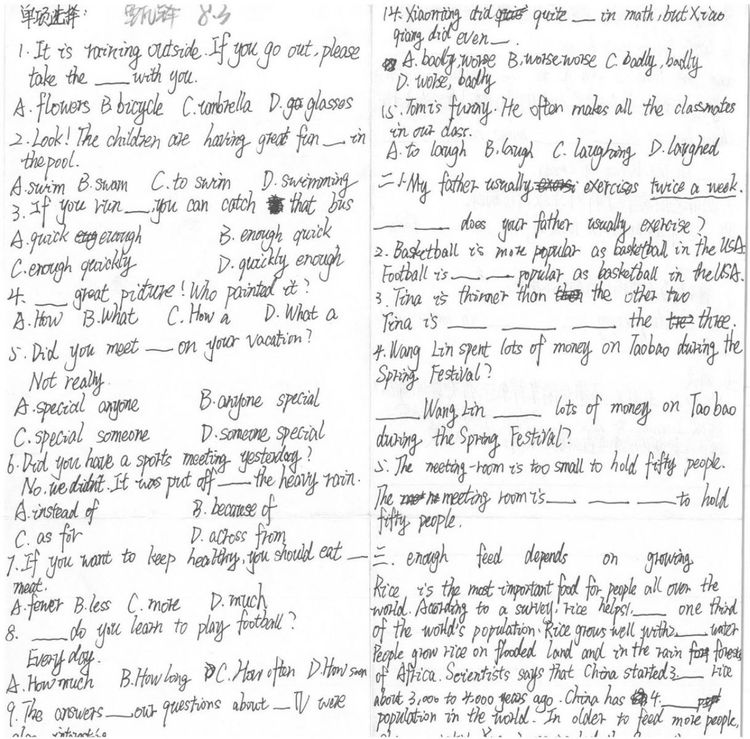 单项选择: 8.3
1. It is raining outside. If you go out, please
take the ___ with you.
A. flowers B bicycle C. umbrella D. glasses
2. Look! The children are having great fun ___ in
the pool.
A. swim B. swam C. to swim D. swimming
3. If you run ___, you can catch that bus
A. quick enough B. enough quick
C. enough quickly D. quickly enough
4. ___ great picture! Who painted it?
A. How B. What C. How a D. What a
5. Did you meet ___ on your vacation?
Not really.
A. special anyone B. anyone special
C. special someone D. someone special
6. Did you have a sports meeting yesterday?
No. we didn't. It was put off ___ the heavy rain.
A. instead of B. because of
C. as for D. across from
7. If you want to keep healthy, you should eat ___
meat.
A. fewer B. less C. more D. much
8. ___ do you learn to play football?
Every day.
A. How much B. How long C. How often D. How soon
9. The answers ___ our questions about ___ TV were
14. Xiaoming did quite ___ in math, but Xiao
qiang did even ___.
A. badly, worse B. worse worse C. badly, badly
D. worse, badly
15. Tom is funny. He often makes all the classmates
in our class.
A. to laugh B. laugh C. laughing D. laughed
二. 1. My father usually exercises twice a week.
___ ___ does your father usually exercise?
2. Basketball is more popular as basketball in the USA.
Football is ___ ___ popular as basketball in the USA.
3. Tina is thinner than the other two
Tina is ___ ___ ___ the three.
4. Wang Lin spent lots of money on Taobao during the
Spring Festival?
___ Wang Lin ___ lots of money on Taobao
during the Spring Festival?
5. The meeting-room is too small to hold fifty people.
The meeting room is ___ ___ ___ to hold
fifty people.
三. enough feed depends on growing
Rice, is the most important food for people all over the
world. Acording to a survey, rice helps 1. ___ one third
of the world's population. Rice grows well with 2. ___ water
People grow rice on flooded land and in the rain forests
of Africa. Scientists says that China started 3. ___ rice
about 3,000 to 4000 years ago. China has 4. ___
population in the world. In older to feed more people,